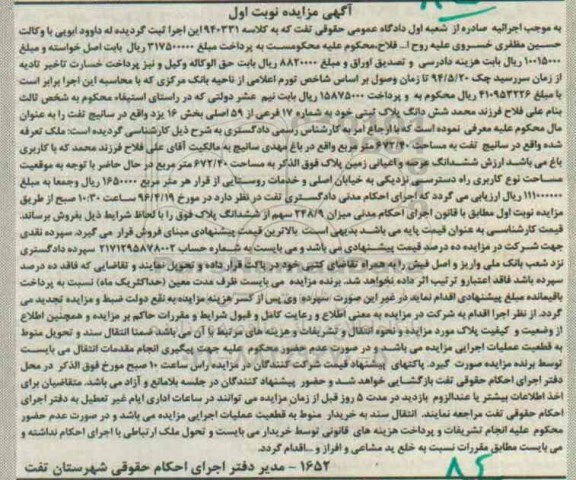 آگهی مزایده نوبت اول
به موجب اجرائیه صادره از شعبه اول دادگاه عمومی حقوقی تفت که به کلاسه ۹۴۰۳۳۱ این اجرا ثبت گردیده له داوود ایوبی با وکالت
حسین مظفری خسروی علیه روح ا... فلاح،محکوم علیه محکومست به پرداخت مبلغ ۳۱۷۵۰۰۰۰۰ ریال بابت اصل خواسته و مبلغ
۱۰۰۱۵۰۰۰ ریال بابت هزینه دادرسی و تصدیق اوراق و مبلغ ۸۸۲۰۰۰۰ ریال بابت حق الوکاله وکیل و نیز پرداخت خسارت تاخیر تادیه
از زمان سررسید چک ۹۴/۵/۲۰ تا زمان وصول بر اساس شاخص تورم اعلامی از ناحیه بانک مرکزی که با محاسبه این اجرا برابر است
با مبلغ ۴۱۰۹۵۳۲۲۶ ریال محکوم به و پرداخت ۱۵۸۷۵۰۰۰ ریال بابت نیم عشر دولتی که در راستای استیفاء محکوم به شخص ثالث
بنام علی فلاح فرزند محمد شش دانگ پلاک ثبتی خود به شماره ۱۷ فرعی از ۵۹ اصلی بخش ۱۶ یزد واقع در سانیج تفت را به عنوان
مال محکوم علیه معرفی نموده است که با ارجاع امر به کارشناس رسمی دادگستری به شرح ذیل کارشناسی گردیده است: ملک تعرفه
شده واقع در سانیج تفت به مساحت ۶۷۲/۴۰ متر مربع واقع در باغ مهدی سانیج به مالکیت آقای علی فلاح فرزند محمد که با کاربری
باغ می باشد ارزش ششدانگ عرصه و اعیانی زمین پلاک فوق الذکر به مساحت ۶۷۲/۴۰ متر مربع در حال حاضر با توجه به موقعیت
مساحت نوع کاربری راه دسترسی نزدیکی به خیابان اصلی و خدمات روستایی از قرار هر متر مربع ۱۶۵۰۰۰۰ ریال وجمعا به مبلغ
۱۱۱۰۰۰۰۰۰۰ ریال ارزیابی می گردد که اجرای احکام مدنی دادگستری تفت در نظر دارد در مورخ ۹۶/۴/۱۹ ساعت ۱۰:۳۰ صبح از طریق
مزایده نوبت اول مطابق با قانون اجرای احکام مدنی میزان ۲۴۸/۹ سهم از ششدانگ پلاک فوق را با لحاظ شرایط ذیل بفروش برساند.
قیمت کارشناسی به عنوان قیمت پایه می باشد. بدیهی است بالاترین قیمت پیشنهادی مبنای فروش قرار می گیرد. سپرده نقدی
جهت شرکت در مزایده ده درصد قیمت پیشنهادی می باشد و می بایست به شماره حساب ۲۱۷۱۲۹۵۸۷۸۰۰۲ سپرده دادگستری
نزد شعب بانک ملی واریز و اصل فیش را به همراه تقاضای کتبی خود در پاکت قرار داده و تحویل نمایند و تقاضایی که فاقد ده درصد
سپرده باشد فاقد اعتبار و ترتیب اثر داده نخواهد شد. برنده مزایده می بایست ظرف مدت معین (حداکثر یک ماه) نسبت به پرداخت
باقیمانده مبلغ پیشنهادی اقدام نماید در غیر این صورت سپرده وی پس از کسر هزینه مزایده به نفع دولت ضبط و مزایده تجدید می
گردد. از نظر اجرا اقدام به شرکت در مزایده به معنی اطلاع و رعایت کامل و قبول شرایط و مقررات حاکم بر مزایده و همچنین اطلاع
از وضعیت و کیفیت پلاک مورد مزایده و نحوه انتقال و تشریفات و هزینه های مرتبط با آن می باشد ضمنا انتقال سند و تحویل منوط
به قطعیت عملیات اجرایی مزایده می باشد و در صورت عدم حضور محکوم علیه جهت پیگیری انجام مقدمات انتقال می بایست
توسط برنده مزایده صورت گیرد. پاکتهای پیشنهاد قیمت شرکت کنندگان در مزایده راس ساعت ۱۰ صبح مورخ فوق الذکر در محل
دفتر اجرای احکام حقوقی تفت بازگشایی خواهد شد و حضور پیشنهاد کنندگان در جلسه بلامانع و آزاد می باشد. متقاضیان برای
اخذ اطلاعات بیشتر یا عندالزوم بازدید در مدت ۵ روز قبل از زمان مزایده می توانند در ساعات اداری ایام غیر تعطیل به دفتر اجرای
احکام حقوقی تفت مراجعه نمایند. انتقال سند به خریدار منوط به قطعیت عملیات اجرایی مزایده می باشد و در صورت عدم حضور
محکوم علیه انجام تشریفات و پرداخت هزینه های قانونی توسط خریدار می بایست و تحول ملک ارتباطی با اجرای احکام نداشته و
می بایست مطابق مقررات نسبت به خلع ید مشاعی و افراز و ...اقدام گردد.
۱۶۵۲ - مدیر دفتر اجرای احکام حقوقی شهرستان تفت